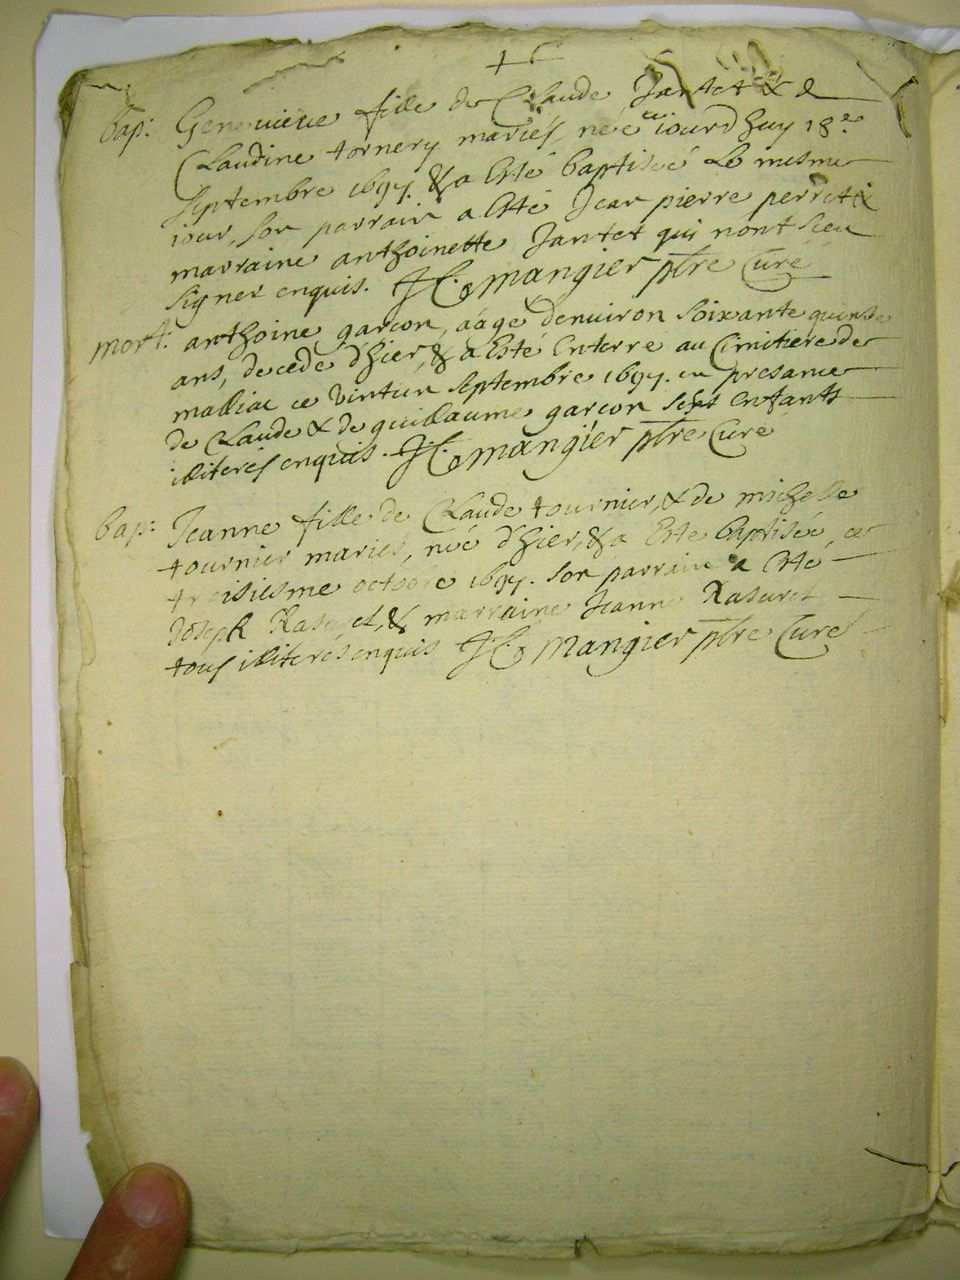 bap: Genevieve fille de Claude Jantet & de
Claudine tornery mariés, neé ce iourdhuy 18.e
Septembre 1697. & a esté baptiseé le mesme
iour, son parrain a esté Jean pierre perret &
marraine anthoinette Jantet qui nont sceu
signer enquis. JC. mangier pbre Curé
mort: anthoine garcon, aage denviron soixante quinse
ans, decedé d'hier, & a esté enterre au Cimitiere de
malliac ce vintun septembre 1697. en presance
de Claude & de guillaume garcon ses enfants
illiteres enquis. JC. mangier pbre Curé
bap: Jeanne fille de Claude tournier, & de michelle
tournier mariés, neé d'hier, & a esté baptisée, ce
troisiesme octobre 1697. son parrain a esté
Joseph Rasurel, & marraine Jeanne Rasurel
tous illiterés enquis JC. Mangier pbre Curé